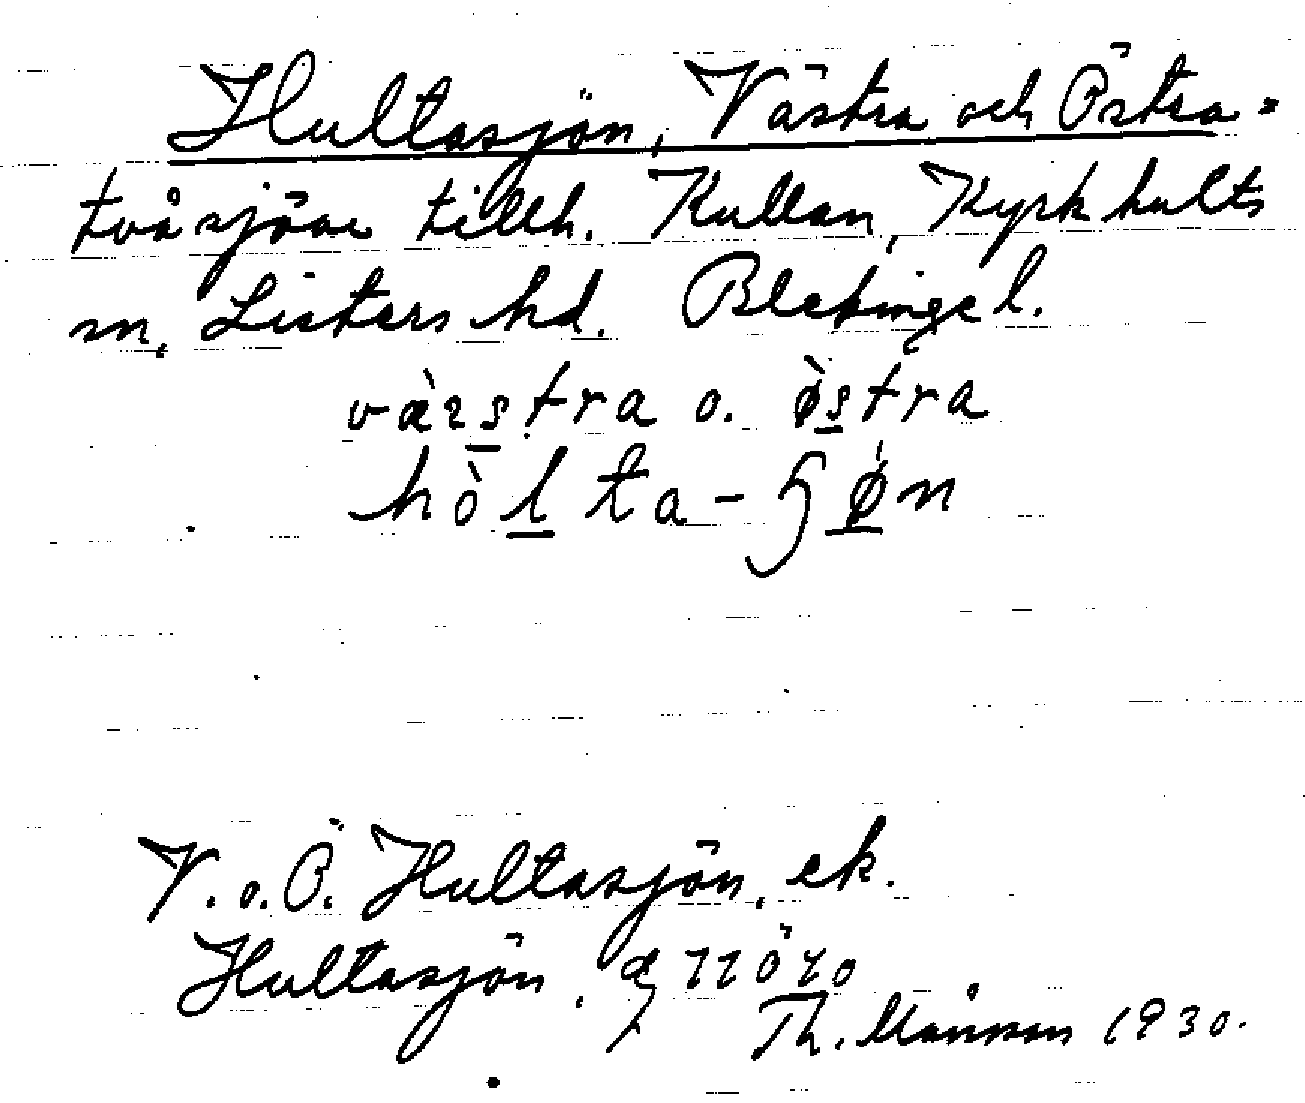 Hultasjön, Västra och Östra -
två sjöar tillh. Kullan, Kyrkhults
sn, Listers hd. Blekinge l.
o. östra
V. o. Ö. Hultasjön, ek.
Hultasjön,
Th. Månsson 1930.